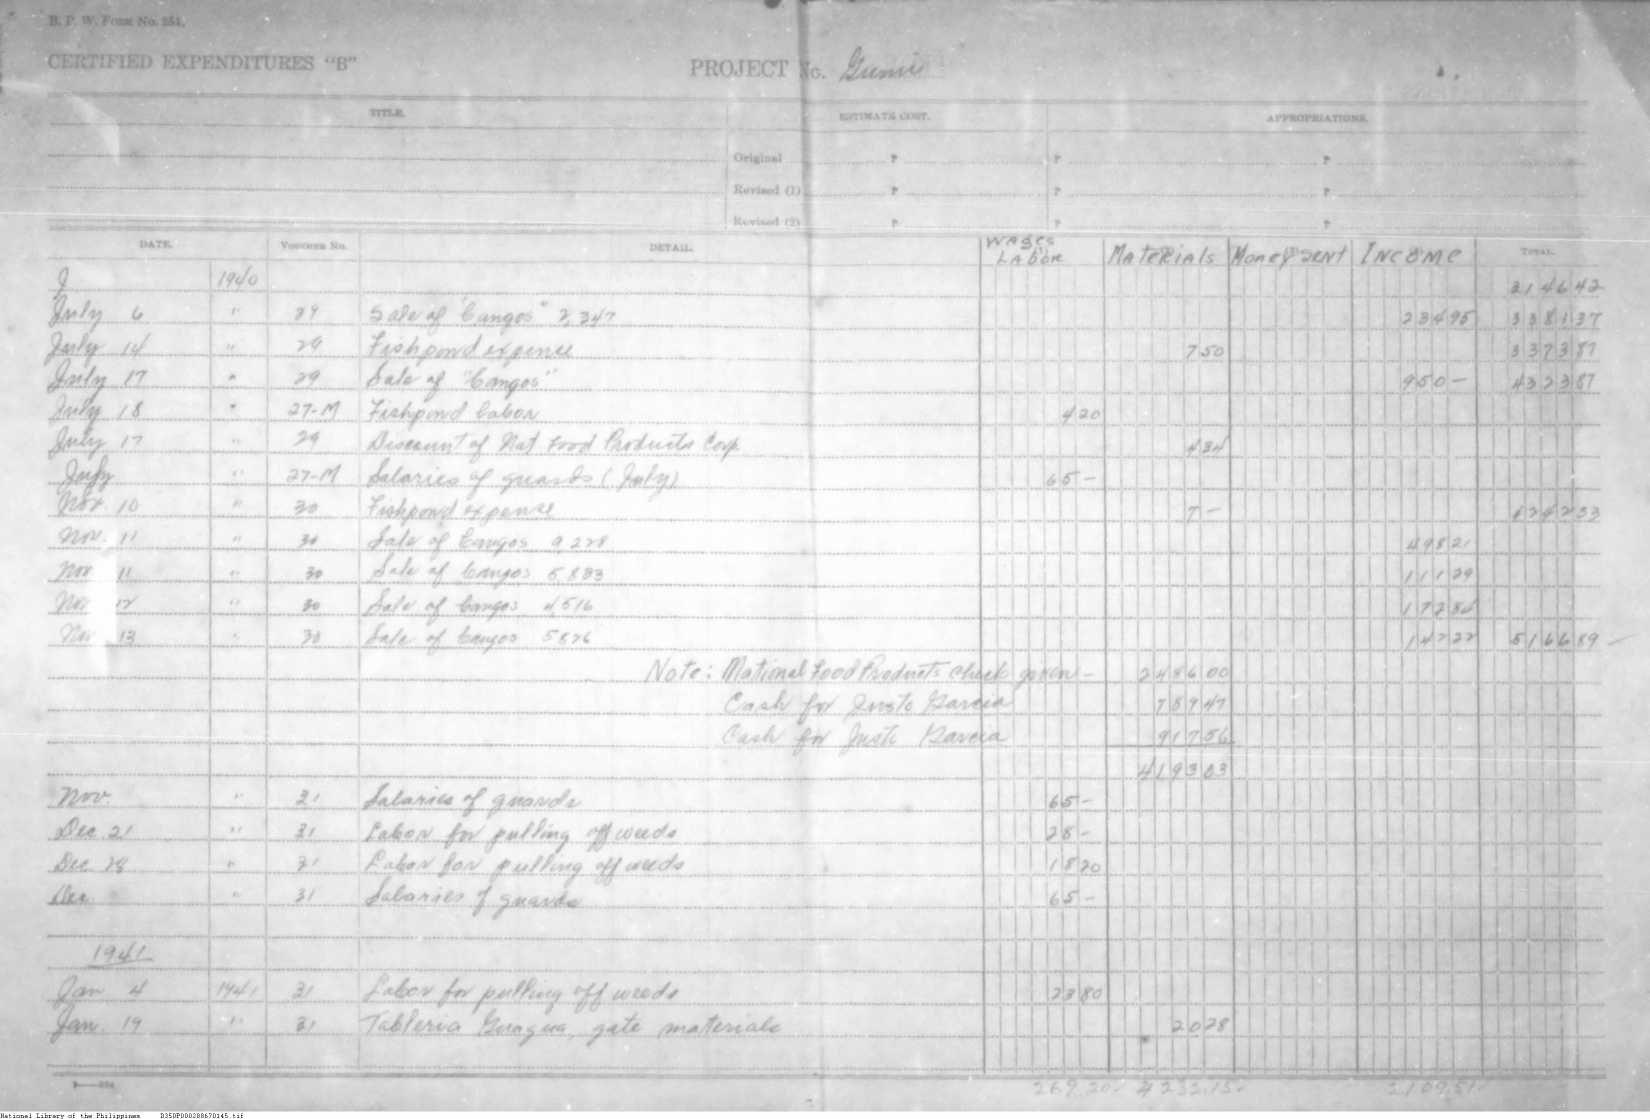 B. P. W. Form No. 251.
CERTIFIED EXPENDITURES "B" PROJECT No.
TITLE. ESTIMATE COST. APPROPRIATIONS.
Original ₱ ₱ ₱
Revised (1) ₱ ₱ ₱
Revised (2) ₱ ₱ ₱
DATE. Voucher No. DETAIL. Wages Labor Materials Money sent Income Total.
J 1940 214642
July 6 " 29 Sale of "bangos" 2,347 23495 338137
July 14 " 29 Fishpond expense 750 337387
July 17 " 29 Sale of "bangos" 950 - 432387
July 18 " 27-M Fishpond labor 420
July 17 " 29 Discount of Nat Food Products Corp 434
July " 27-M Salaries of guards (July) 65 -
Nov. 10 " 30 Fishpond expense 7 - 424233
Nov. 11 " 30 Sale of bangos 9,228 49821
Nov 11 " 30 Sale of bangos 5,883 11129
Nov 12 " 30 Sale of bangos 4,516 17284
Nov 13 " 30 Sale of bangos 5876 14222 516689
Note: National Food Products check given - 248600
Cash for Justo Garcia 78947
Cash for Justo Garcia 91756
419303
Nov. " 31 Salaries of guards 65 -
Dec. 21 " 31 Labor for pulling off weeds 28 -
Dec 28 " 31 Labor for pulling off weeds 1820
Dec. " 31 Salaries of guards 65 -
1941
Jan 4 1941 31 Labor for pulling off weeds 2380
Jan. 19 " 31 Tableria Guagua, gate materials 2028
269.20 4232.15 2,109.51
National Library of the Philippines D350P000288670145.tif